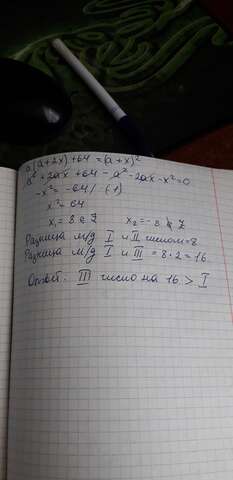 a(a+2x)+64=(a+x)²
a²+2ax+64-a²-2ax-x²=0
-x²=-64/·(-1)
x²=64
x₁=8 ∈ Z x₂=-8 ∉ Z
Разница м/д I и II числом=8
Разница м/д I и III = 8·2=16
Ответ. III число на 16 > I